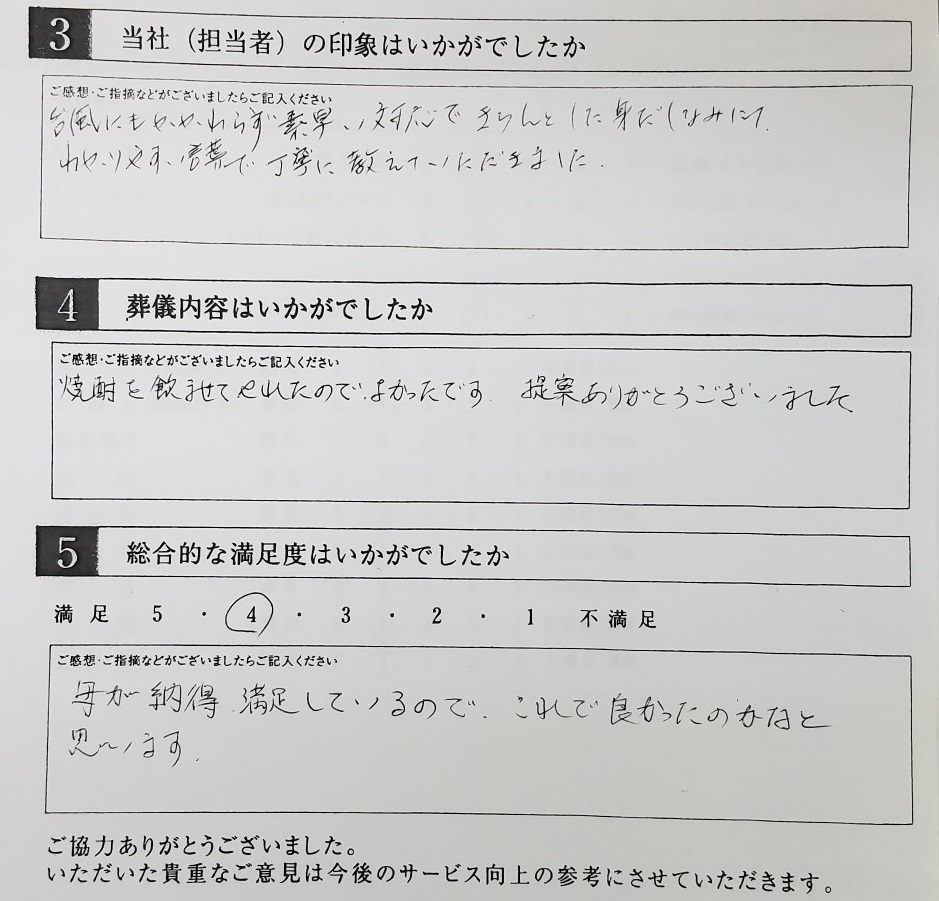 3 当社（担当者）の印象はいかがでしたか
ご感想・ご指摘などがございましたらご記入ください
台風にもかかわらず素早い対応できちんとした身だしなみにて、
わかりやすい言葉で丁寧に教えていただきました.
4 葬儀内容はいかがでしたか
ご感想・ご指摘などがございましたらご記入ください
焼酎を飲ませてやれたのでよかったです 提案ありがとうございました
5 総合的な満足度はいかがでしたか
満足 5 ・ 4 ・ 3 ・ 2 ・ 1 不満足
ご感想・ご指摘などがございましたらご記入ください
母が納得、満足しているので、これで良かったのかなと
思います.
ご協力ありがとうございました。
いただいた貴重なご意見は今後のサービス向上の参考にさせていただきます。